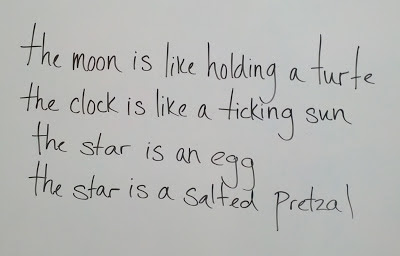 the moon is like holding a turte
the clock is like a ticking sun
the star is an egg
the star is a salted pretzal